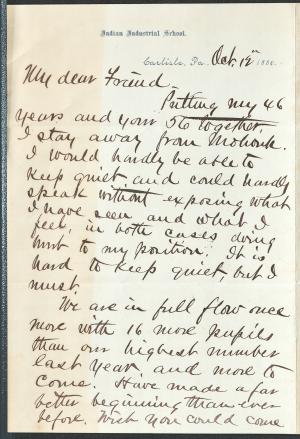 Indian Industrial School.
Carlisle, Pa. Oct. 12" 1886.
My dear Friend.
Putting my 46
years and your 56 together.
I stay away from Mohonk.
I would hardly be able to
keep quiet and could hardly
speak without exposing what
I have seen and what I
feel, in both cases doing
hurt to my position. It is
hard to keep quiet, but I
must.
We are in full flow once
more with 16 more pupils
than our highest number
last year, and more to
come. Have made a far
better beginning than ever
before. Wish you could come